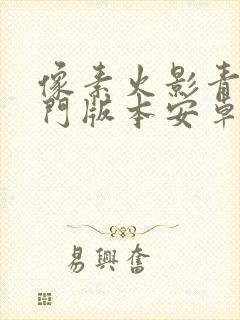 像素火影青
門版本安卓
易興奮